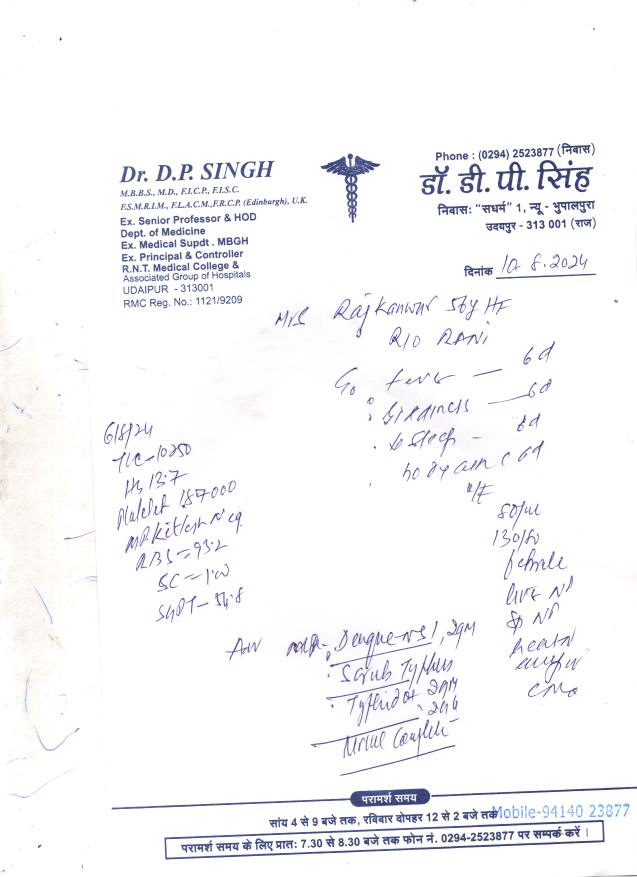 Dr. D.P. SINGH
M.B.B.S., M.D., F.I.C.P., F.I.S.C.
F.S.M.R.I.M., F.L.A.C.M., F.R.C.P. (Edinburgh), U.K.
Ex. Senior Professor & HOD
Dept. of Medicine
Ex. Medical Supdt . MBGH
Ex. Principal & Controller
R.N.T. Medical College &
Associated Group of Hospitals
UDAIPUR - 313001
RMC Reg. No.: 1121/9209
Phone : (0294) 2523877 (निवास)
डॉ. डी. पी. सिंह
निवासः "सधर्म" 1, न्यू - भुपालपुरा
उदयपुर - 313 001 (राज)
दिनांक 10.8.2024
Mrs Rajkanwar 56y HF
R/O RANI
fever — 6d
Giddiness — 6d
6d
6d
6/8/24
TLC-10250
Hb 13.7
Platelet 187000
RBS = 93.2
SC - 1.0
SGPT - 54.8
130/80
Adv Dengue NS1, IgM
Scrub Typhus
Typhidot IgM
IgG
Urine Complete
परामर्श समय
सांय 4 से 9 बजे तक, रविवार दोपहर 12 से 2 बजे तक Mobile-94140 23877
परामर्श समय के लिए प्रातः 7.30 से 8.30 बजे तक फोन नं. 0294-2523877 पर सम्पर्क करें ।